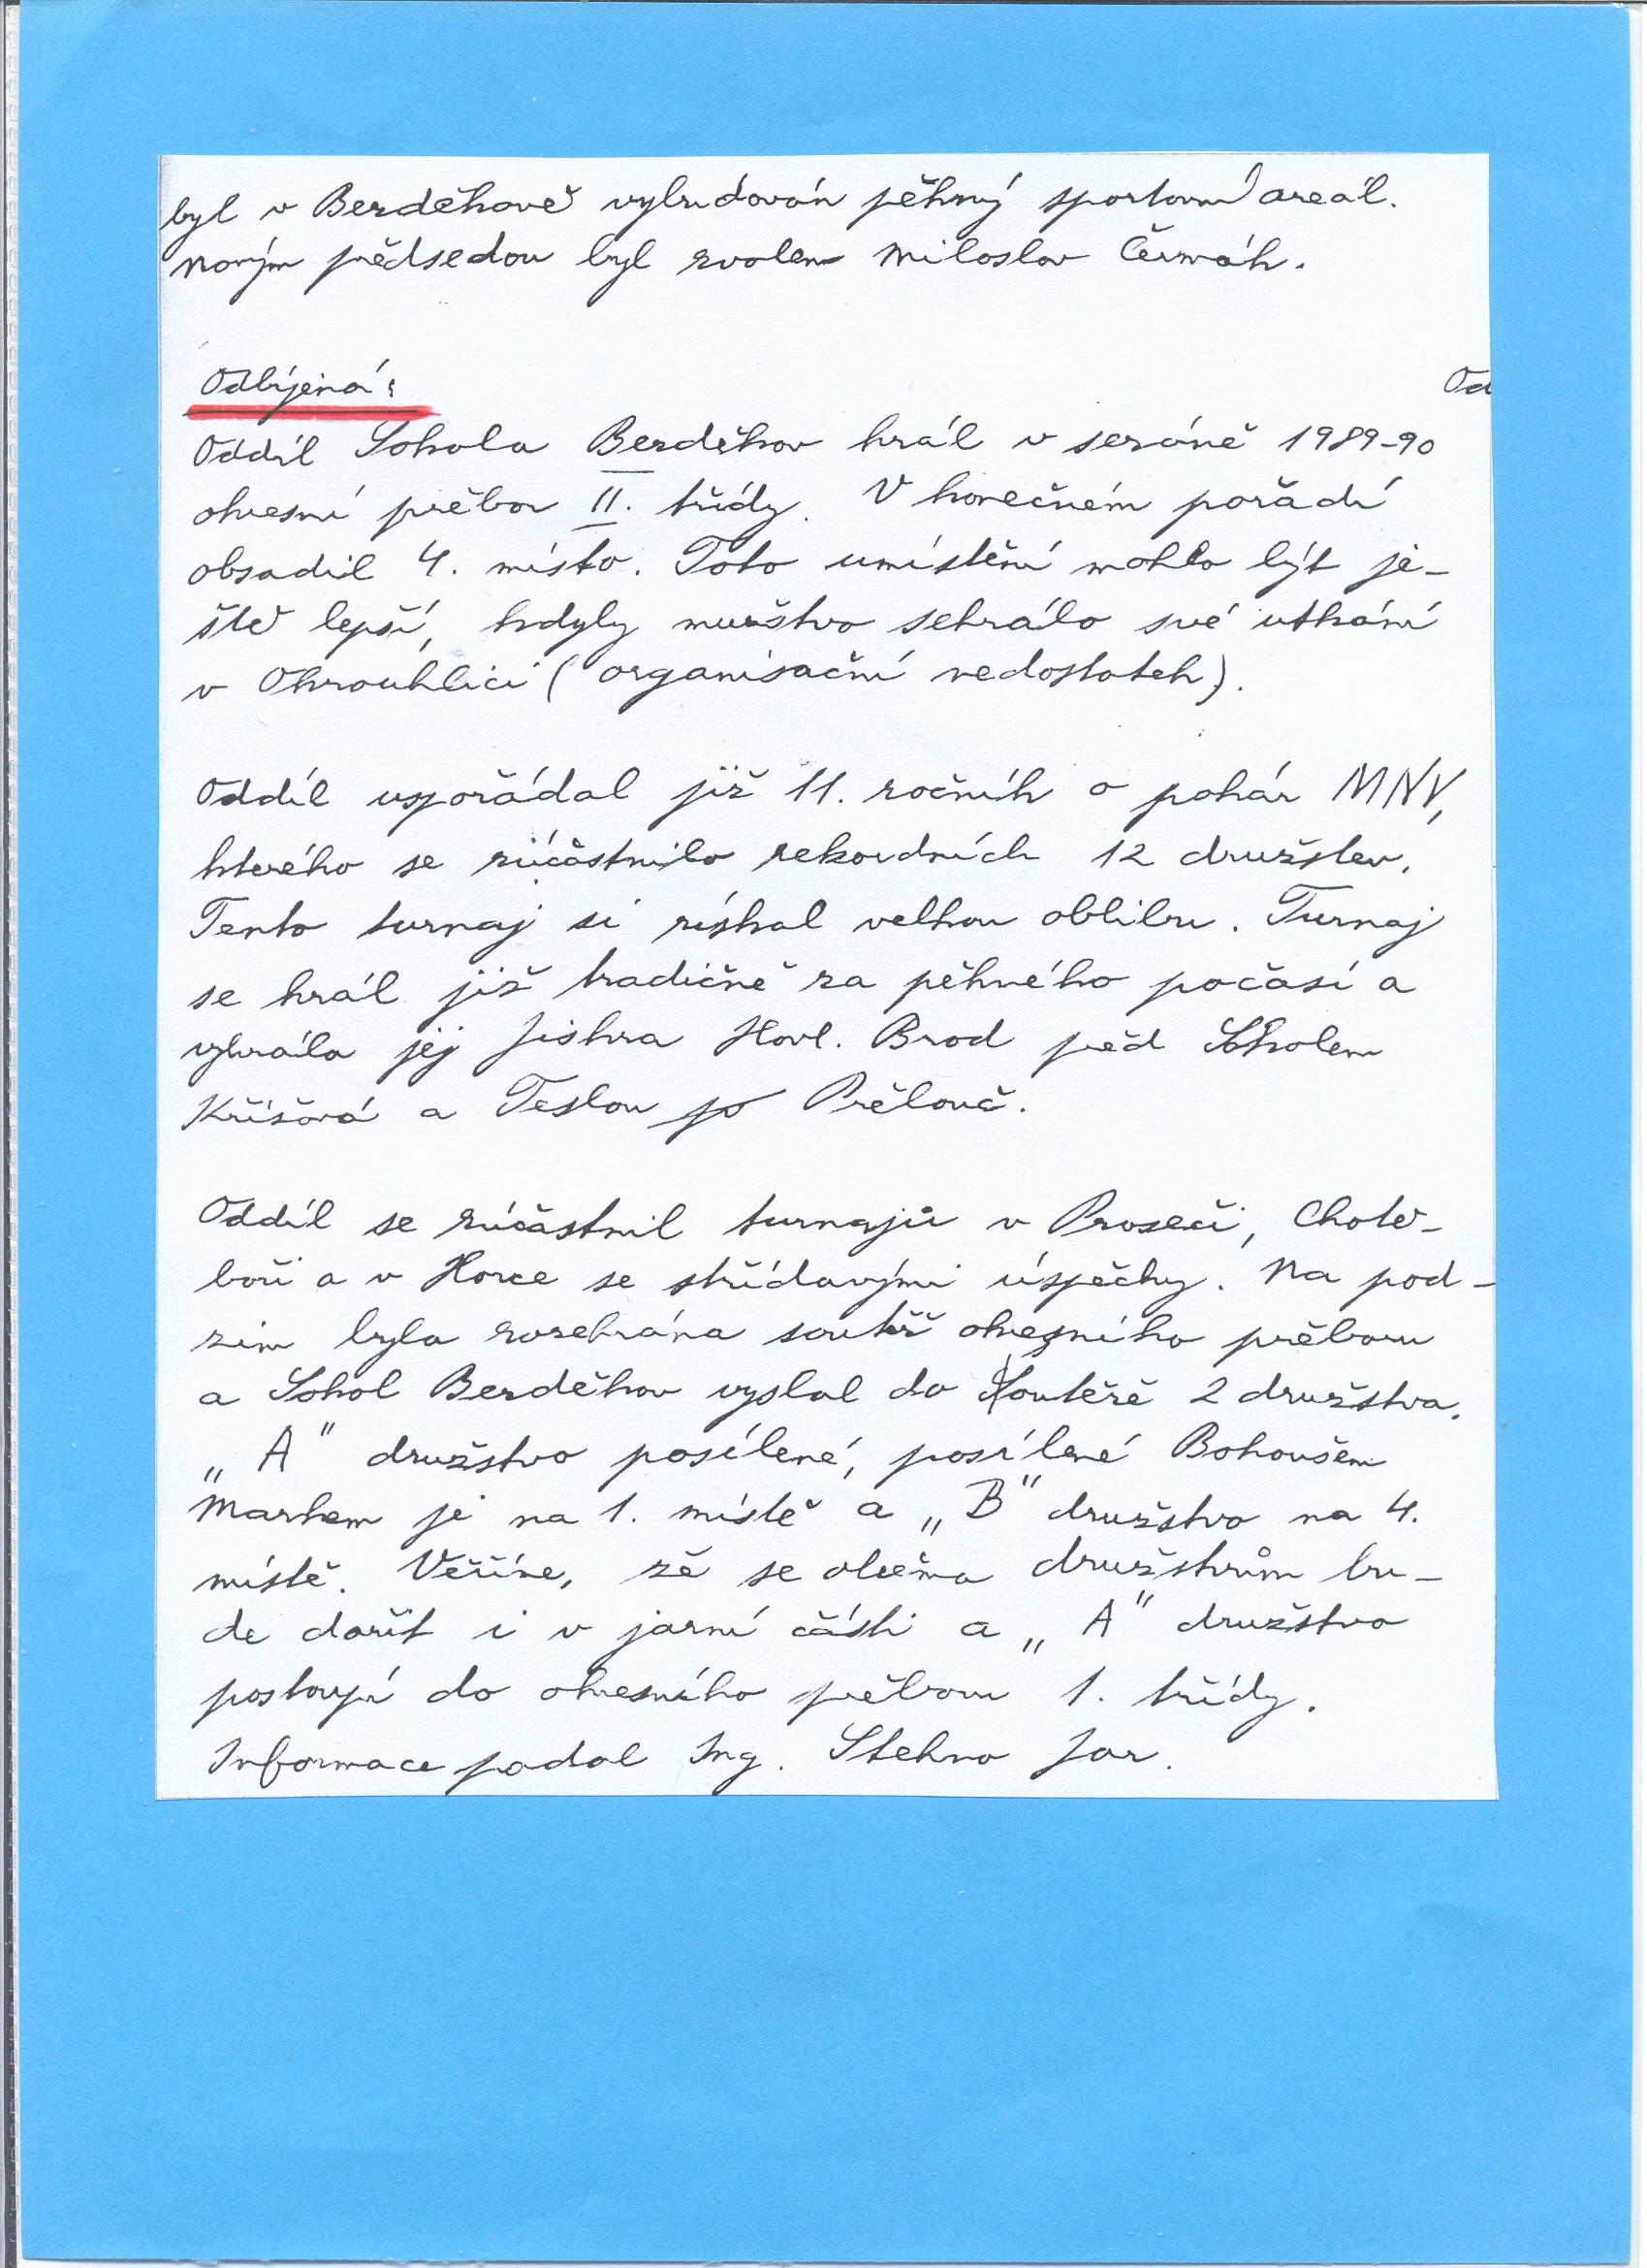 byl v Bezděkově vybudován pěkný sportovní areál.
Novým předsedou byl zvolen Miloslav Čermák.
Odbíjená: Od
Oddíl Sokola Bezděkov hrál v sezóně 1989-90
okresní přebor II. třídy. V konečném pořadí
obsadil 4. místo. Toto umístění mohlo být je-
ště lepší, kdyby mužstvo sehrálo své utkání
v Okrouhlici (organisační nedostatek).
Oddíl uspořádal již 11. ročník o pohár MNV,
kterého se zúčástnilo rekordních 12 družstev.
Tento turnaj si získal velkou oblibu. Turnaj
se hrál již tradičně za pěkného počasí a
vyhrála jej Jiskra Havl. Brod před Sokolem
Křišová a Teslou Přělouč.
Oddíl se zúčástnil turnajů v Proseči, Chotě-
boři a v Horce se střídavými úspěchy. Na pod-
zim byla rozehrána soutěž okresního přeboru
a Sokol Bezděkov vyslal do soutěže 2 družstva.
„A" družstvo posílené, posílené Bohoušem
Markem je na 1. místě a „B" družstvo na 4.
místě. Věříme, že se oběma družstvům bu-
de dařit i v jarní části a „A" družstvo
postoupí do okresního přeboru 1. třídy.
Informace podal Ing. Stehno Jar.